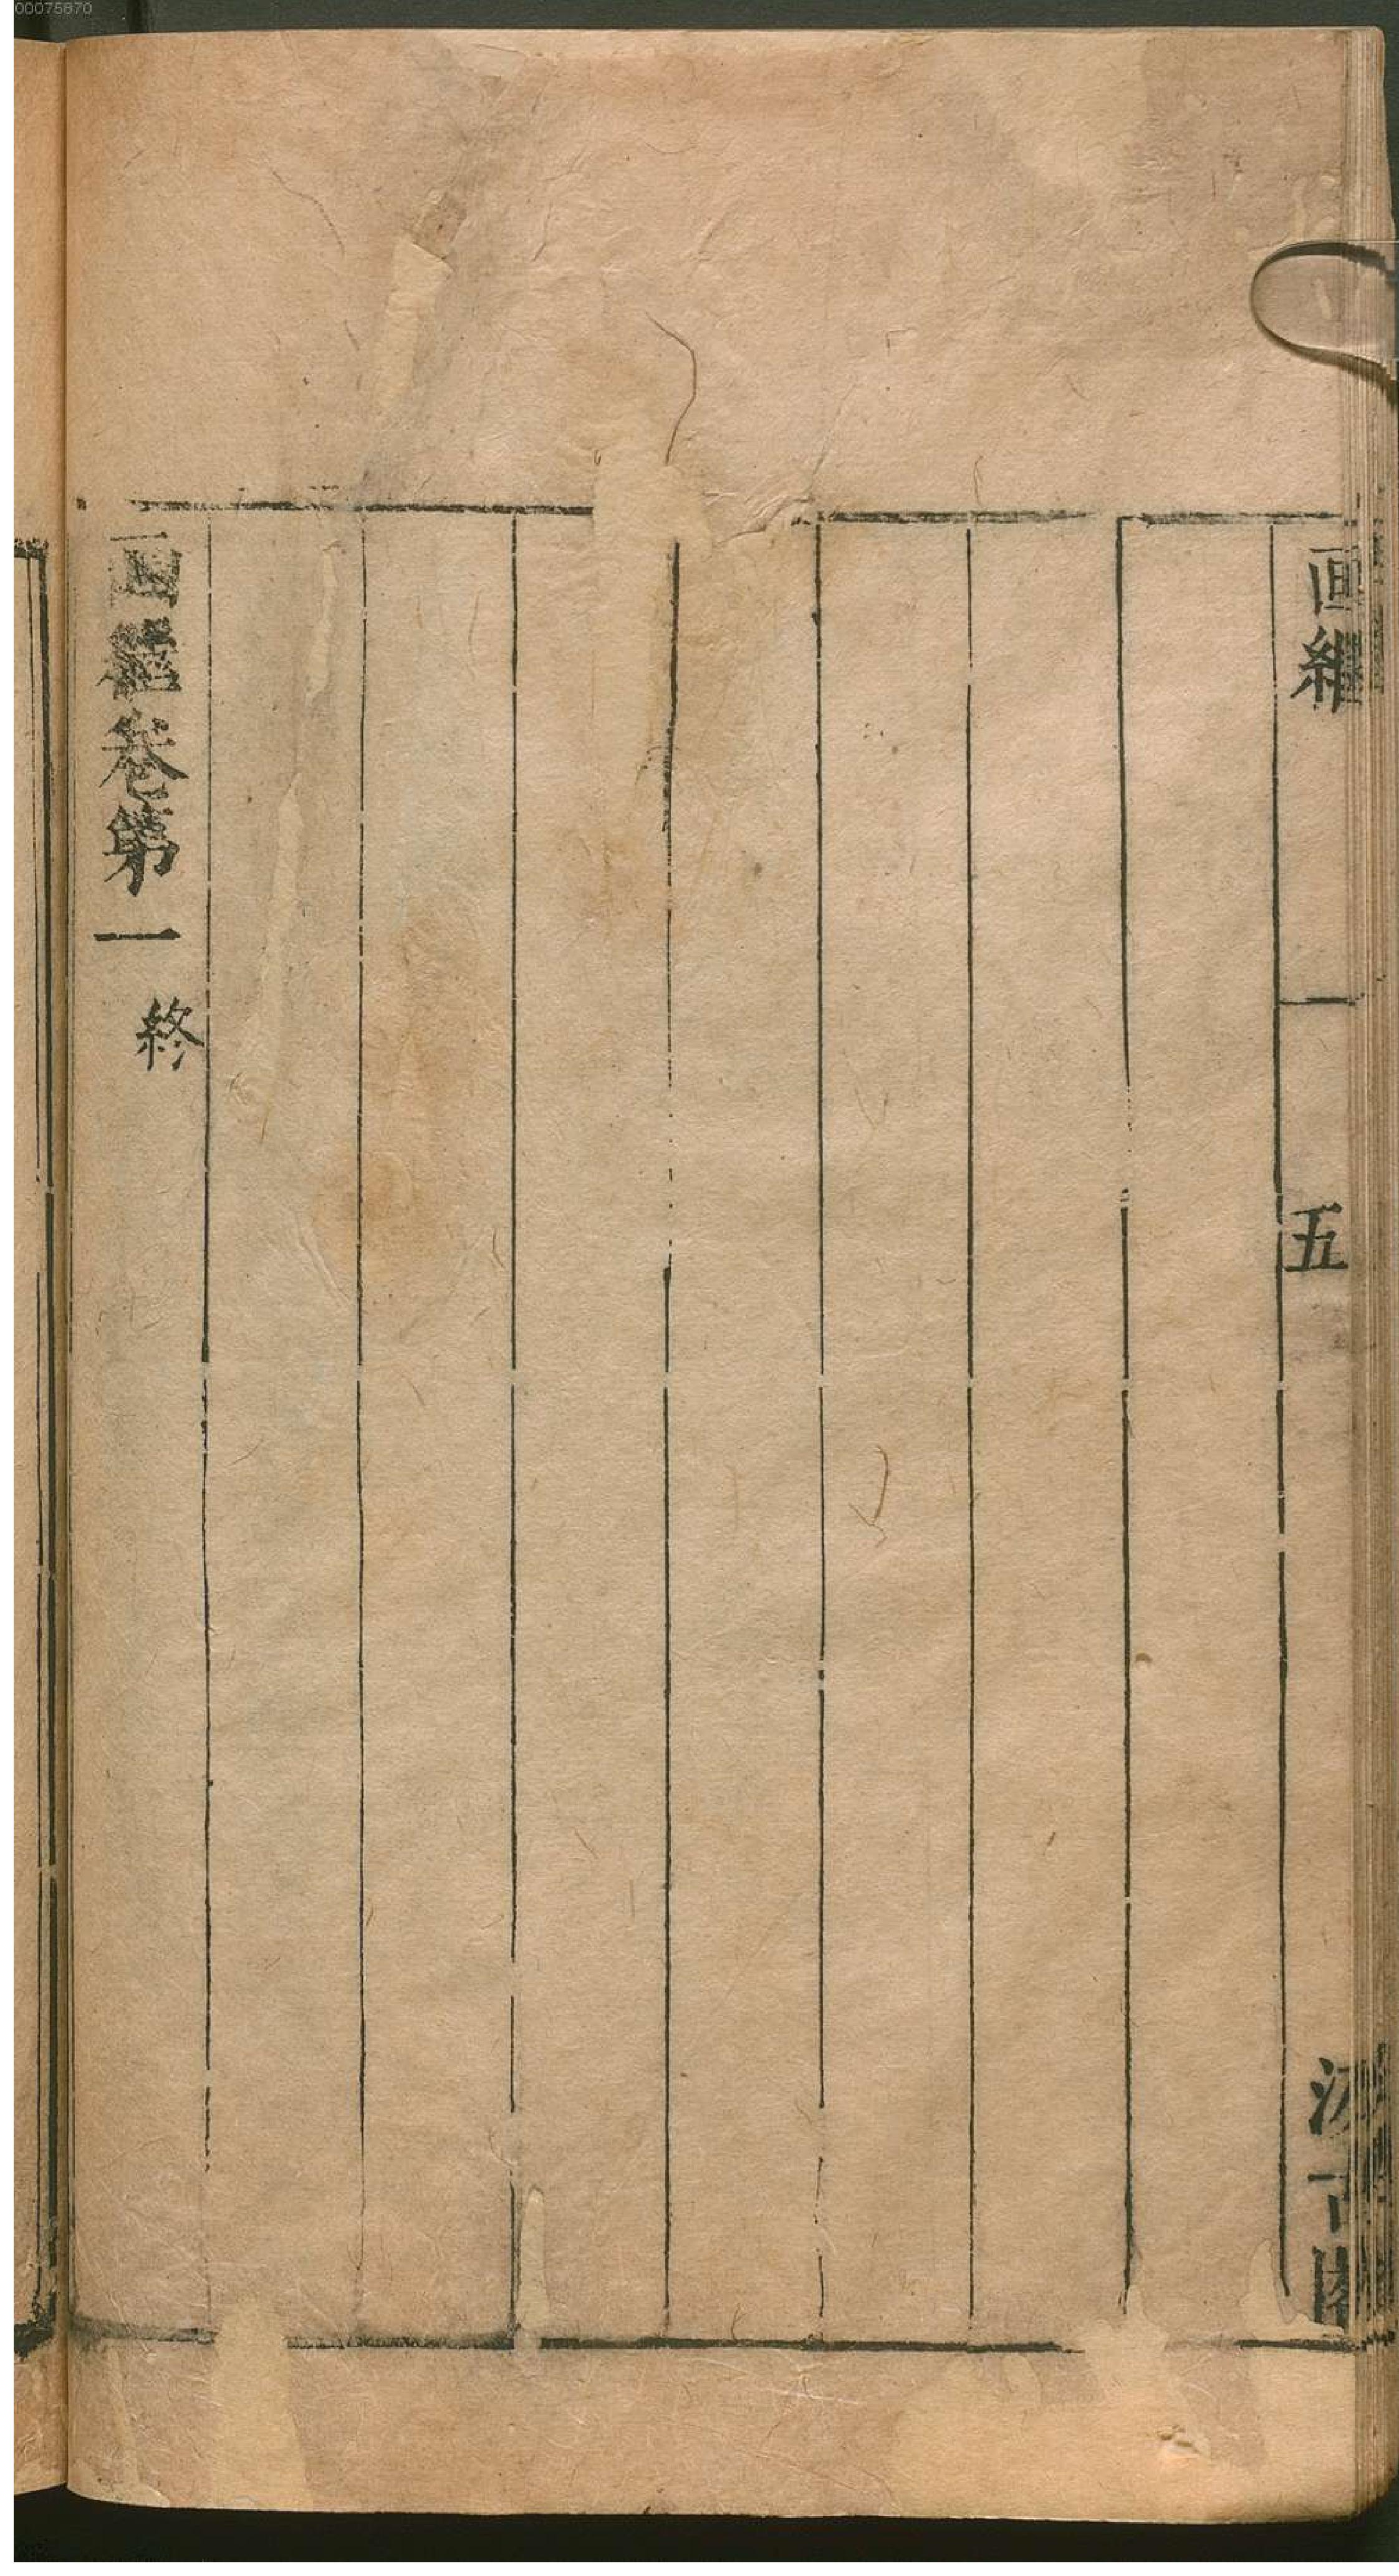 00075870
画繼 一 五 汲古閣
画繼卷第一 終